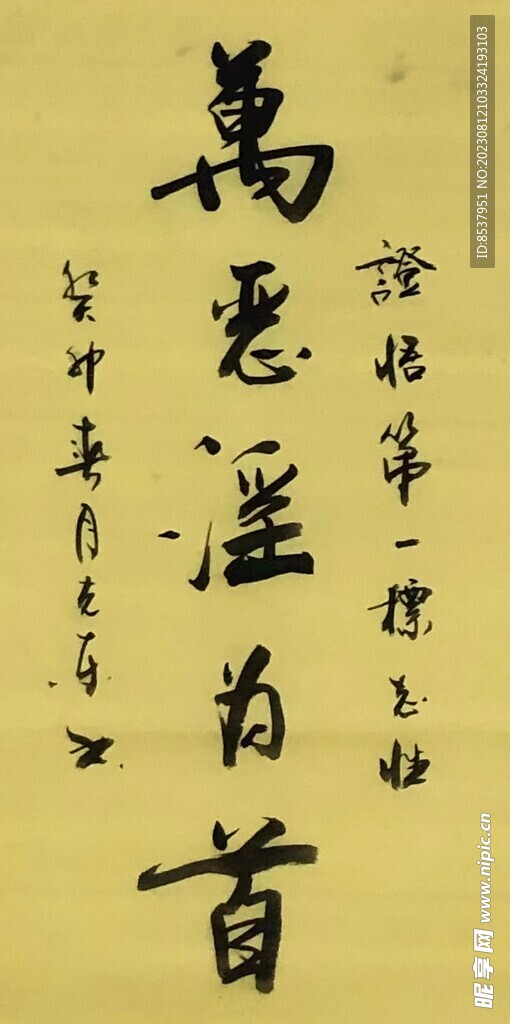 證悟第一標志性
萬惡淫为首
癸卯春月克東书
ID:8537951 NO:20230812103324193103
昵享网 www.nipic.cn